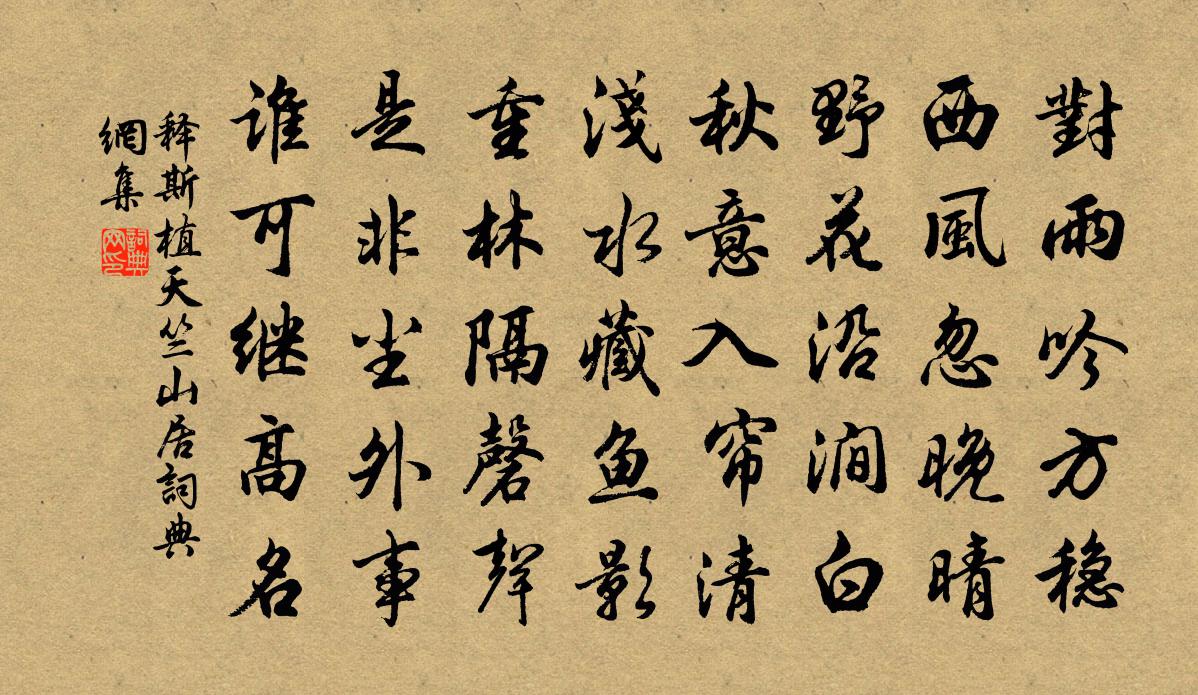 對雨吟方穏
西風忽晚晴
野花沿澗白
秋意入帘清
淺水藏鱼影
重林隔磬聲
是非尘外事
谁可继高名
释斯植天竺山居詞典
網集
詞典
网印